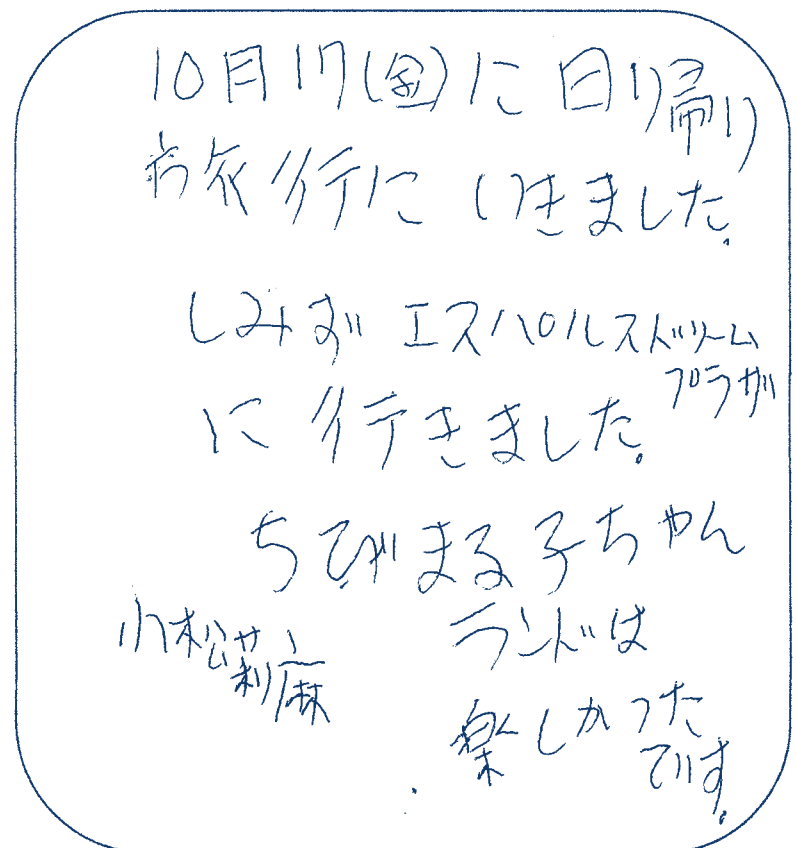 10月17(金)に日り帰り
旅行にいきました。
しみずエスパルスドリーム
プラザ
に行きました。
ちびまる子ちゃん
ランドは
小松莉麻
楽しかった
です。